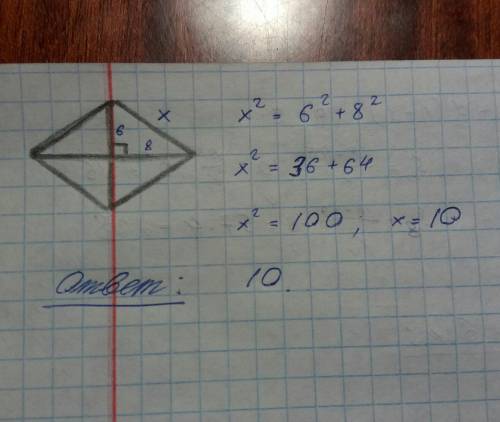 x
6
8
x² = 6² + 8²
x² = 36 + 64
x² = 100 ; x = 10
Ответ: 10.